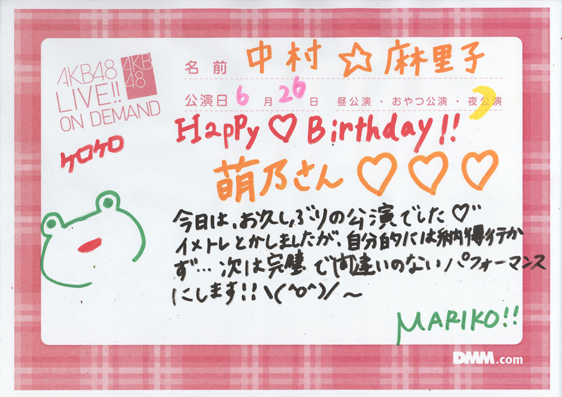 AKB48
LIVE!!
ON DEMAND
AKB
48
名前 中村☆麻里子
公演日 6月26日 昼公演・おやつ公演・夜公演
HaPPy ♡ Birthday!!
ケロケロ
萌乃さん♡♡♡
今日は、お久しぶりの公演でした♡
イメトレとかしましたが、自分的には納得行か
ず…次は完璧で間違いのないパフォーマンス
にします!!\(^o^)/~
MARIKO!!
DMM.com